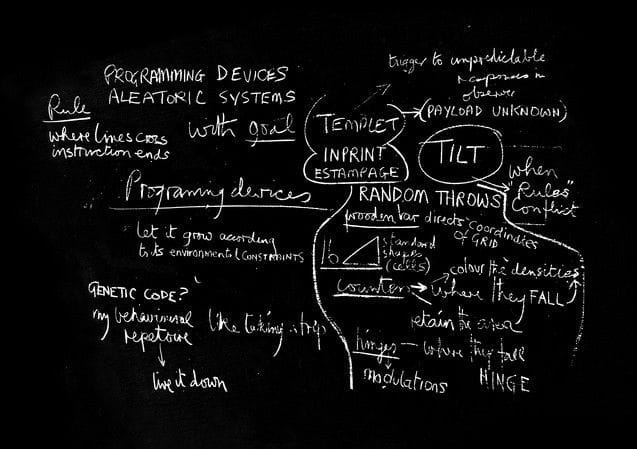 PROGRAMMING DEVICES
ALEATORIC SYSTEMS
with goal
Rule
where lines cross
instruction ends
Programing devices
let it grow according
to its environmental CONSTRAINTS
GENETIC CODE?
my behavioural
repetoire
live it down
like taking a trip
trigger to unpredictable
responses in
observer
(PAYLOAD UNKNOWN)
TEMPLET
INPRINT
ESTAMPAGE
TILT
when
"Rules"
Conflict
RANDOM THROWS
wooden bar directs coordinates
of GRID
standard
shapes
(cells)
colour the densities
counters
where they FALL
retain the area
hinges where they fall
modulations
HINGE